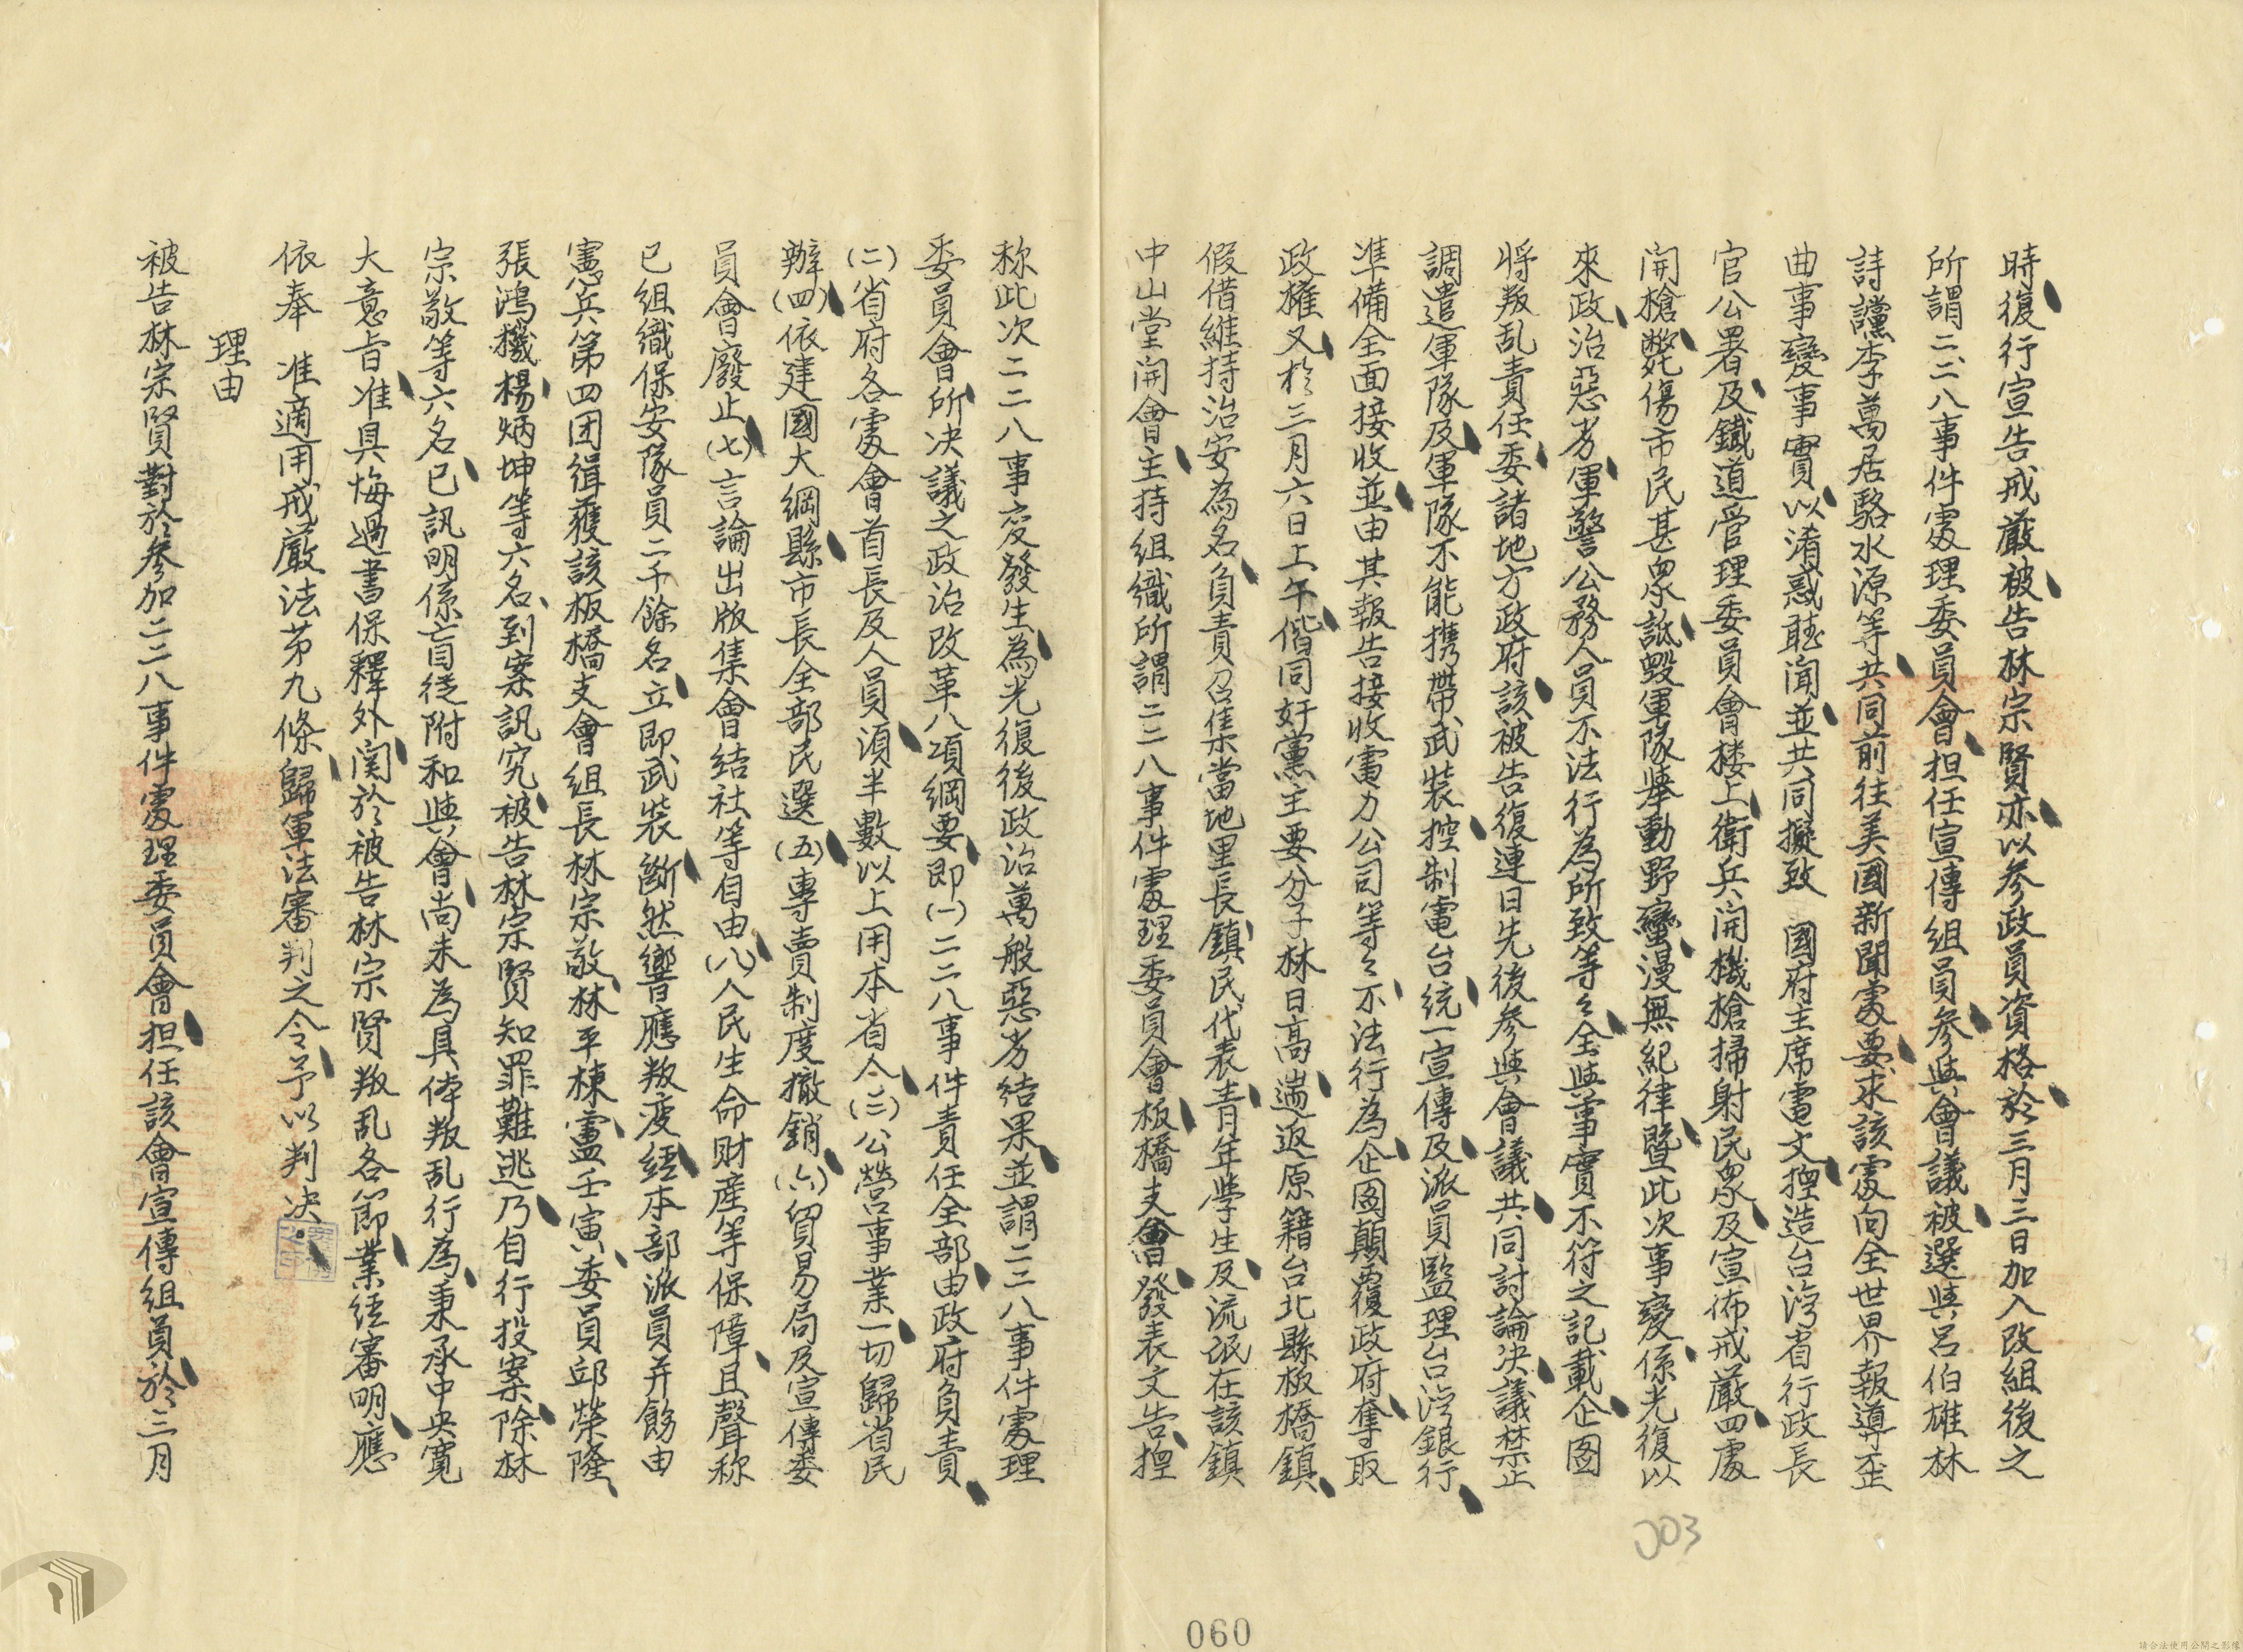 時復行宣告戒嚴被告林宗賢亦以參政員資格於三月三日加入改組後之
所謂二二八事件處理委員會担任宣傳組員參與會議被選與呂伯雄林
詩黨李萬居駱水源等共同前往美國新聞處要求該處向全世界報導歪
曲事變事實以淆惑聽聞並共同擬致　國府主席電文揑造台灣省行政長
官公署及鐵道管理委員會楼上衛兵開機槍掃射民衆及宣佈戒嚴四處
開槍斃傷市民甚衆詆毀軍隊舉動野蠻漫無紀律暨此次事變係光復以
來政治惡劣軍警公務人員不法行為所致等々全與事實不符之記載企图
将叛乱責任委諸地方政府該被告復連日先後參與會議共同討論決議禁止
調遣軍隊及軍隊不能携帶武裝控制電台統一宣傳及派員監理台湾銀行
準備全面接收並由其報告接收電力公司等々不法行為企图顛覆政府奪取
政權又於三月六日上午偕同奸黨主要分子林日高遄返原籍台北縣板橋鎮
假借維持治安為名負責召集當地里長鎮民代表青年學生及流氓在該鎮
中山堂開會主持組織所謂二二八事件處理委員會板橋支會發表文告揑
称此次二二八事变發生為光復後政治萬般惡劣結果並謂二二八事件處理
委員會所決議之政治改革八項綱要即(一)二二八事件責任全部由政府負責
(二)省府各處會首長及人員須半數以上用本省人(三)公營事業一切歸省民
辦(四)依建國大綱縣市長全部民選(五)專賣制度撤銷(六)貿易局及宣傳委
員會廢止(七)言論出版集會结社等自由(八)人民生命財產等保障且聲称
已組織保安隊員二千餘名立即武裝断然響應叛变經本部派員并飭由
憲兵第四团緝獲該板橋支會組長林宗敬林平棟盧壬寅委員邱榮隆
張鴻機楊炳坤等六名到案訊究被告林宗賢知罪難逃乃自行投案除林
宗敬等六名已訊明係盲從附和與會尚未為具体叛乱行為秉承中央寬
大意旨准具悔過書保釋外関於被告林宗賢叛乱各節業經審明應
依奉　准適用戒嚴法第九條歸軍法審判之令予以判決
理由
被告林宗賢對於參加二二八事件處理委員會担任該會宣傳組員於三月
003
060
請合法使用公開之影像